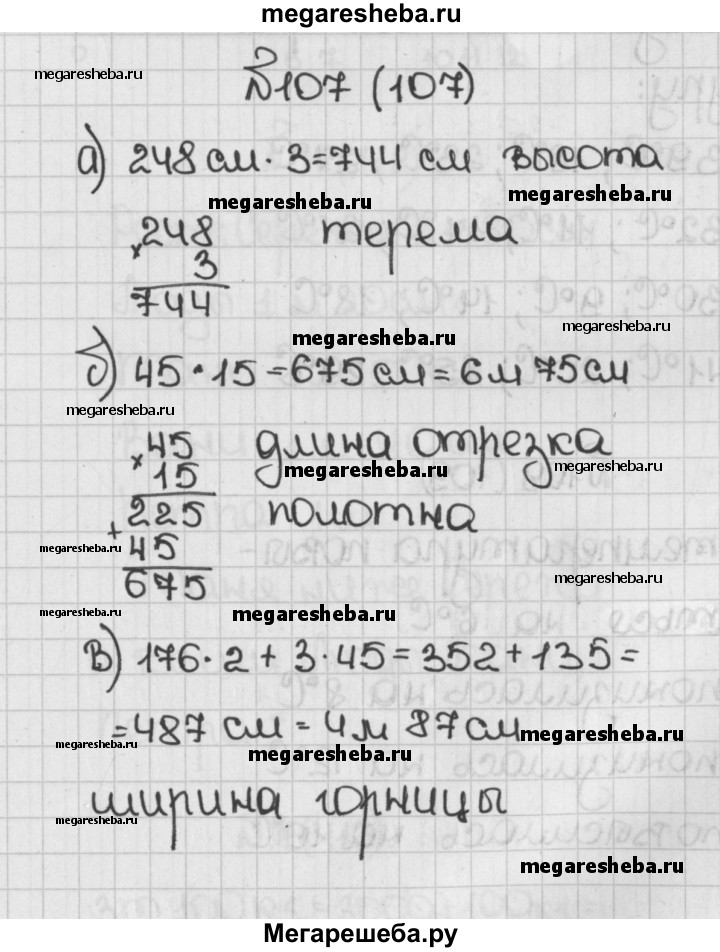 megaresheba.ru
megaresheba.ru
№107 (107)
megaresheba.ru
а) 248 см · 3 = 744 см высота
megaresheba.ru
× 248 терема
3
744
megaresheba.ru
megaresheba.ru
б) 45 · 15 = 675 см = 6 м 75 см
megaresheba.ru
× 45 длина отрезка
15
megaresheba.ru
megaresheba.ru
225 полотна
+
megaresheba.ru
45
675
megaresheba.ru
megaresheba.ru
megaresheba.ru
в) 176 · 2 + 3 · 45 = 352 + 135 =
= 487 см = 4 м 87 см
megaresheba.ru
megaresheba.ru
megaresheba.ru
ширина горницы
megaresheba.ru
megaresheba.ru
Мегарешеба.ру